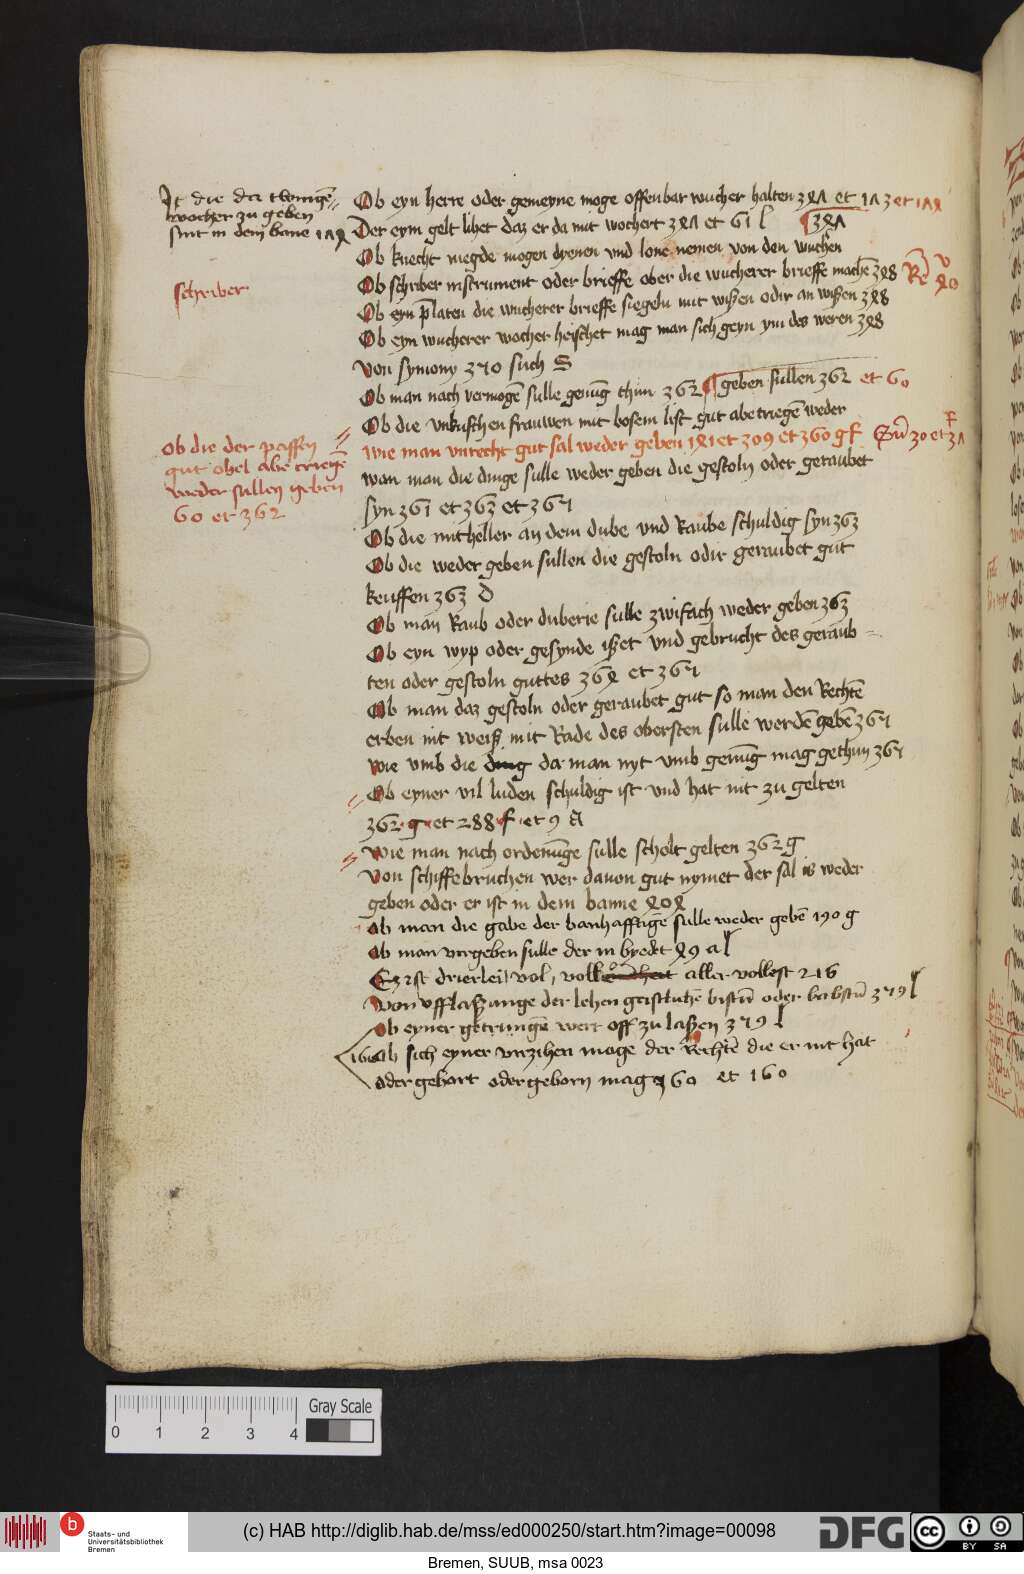 It die da twingē
wocher zu geben
sint in dem bane 1Λ8
schriber
ob die der paffen
gut ohel abe triegē
weder sullen geben
60 et 362
Ob eyn herre oder gemeyne moge offenbar wucher halten 38Λ et 1Λ3 et 1Λ8
Der eym gelt lihet daz er da mit wochert 38Λ et 61 38Λ
Ob knecht megde mogen dyenen vnd lone nemen von den wuchern
Ob schriber instrument oder brieffe ober die wucherer brieffe machē 388
Ob eyn p̄laten die wucherer brieffe siegeln mit wißen odir an wißen 388
Ob eyn wucherer wocher heischet mag man sich geyn ym des weren 388
Von symony 370 such S
Ob man nach vermogē sulle genūg thun 362 geben sullen 362 et 60
Ob die vnkuschen frauwen mit bosem list gut abe triegē weder
wie man vnrecht gut sal weder geben 181 et 309 et 360 g f
wan man die dinge sulle weder geben die gestoln oder geraubet
syn 361 et 363 et 364
Ob die mitheller an dem dube vnd Raube schuldig syn 363
Ob die weder geben sullen die gestoln odir geraubet gut
keuffen 363 D
Ob man Raub oder duberie sulle zwifach weder geben 363
Ob eyn wyp oder gesynde ißet vnd gebrucht des geraub
ten oder gestoln guttes 368 et 364
Ob man daz gestoln oder geraubet gut so man den Rechtē
erben nit weiß mit Rade des obersten sulle werdē gebē 364
wie vmb die ding da man nyt vmb genūg mag gethun 364
Ob eyner vil luden schuldig ist vnd hat nit zu gelten
362 g et 288 f et 9 A
wie man nach ordenūge sulle scholt gelten 362 g
Von schiffebruchen wer dauon gut nymet der sal is weder
geben oder er ist in dem banne 808
Ob man die gabe der banhafftigē sulle weder gebē 190 g
Ob man vergeben sulle der in bredt 89 a
Ez ist drierlei vol, voll aller vollest 216
Von vfflaßunge der lehen geistlichē bistū oder babstū 379
Ob eyner getrungē wert off zu laßen 379
160 Ob sich eyner vnzihen moge der Rechtē die er nit hat
oder gehort oder geborn mag 360 et 160
0 1 2 3 4
Gray Scale
b Staats- und
Universitätsbibliothek
Bremen
(c) HAB http://diglib.hab.de/mss/ed000250/start.htm?image=00098
DFG
cc BY SA
Bremen, SUUB, msa 0023